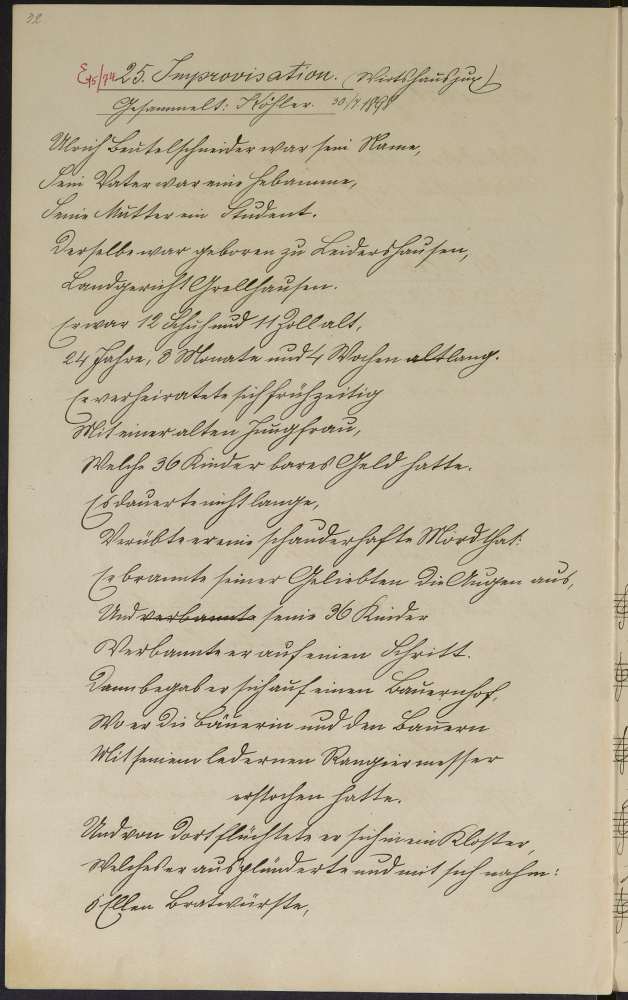 32
E 15/74 25. Improvisation. (Wirtshausjux)
Gesammelt: Köhler. 30/7 1898
Ulrich Beutelschneider war sein Name,
Sein Vater war eine Hebamme,
Seine Mutter ein Student.
Derselbe war geboren zu Leidershausen,
Landgericht Grellhausen.
Er war 12 Schuh und 11 Zoll alt,
24 Jahre, 3 Monate und 4 Wochen alt lang.
Er verheiratete sich frühzeitig
Mit einer alten Jungfrau,
Welche 36 Kinder bares Geld hatte.
Es dauerte nicht lange,
Verübte er eine schauderhafte Mordthat:
Er brannte seiner Geliebten die Augen aus,
Und verbannte seine 36 Kinder
Verbannte er auf einen Schritt.
Dann begab er sich auf einen Bauernhof,
Wo er die Bäuerin und den Bauern
Mit seinem ledernen Rangiermesser
erstochen hatte.
Und von dort flüchtete er sich in ein Kloster,
Welches er ausplünderte und mit sich nahm:
6 Ellen Bratwürste,